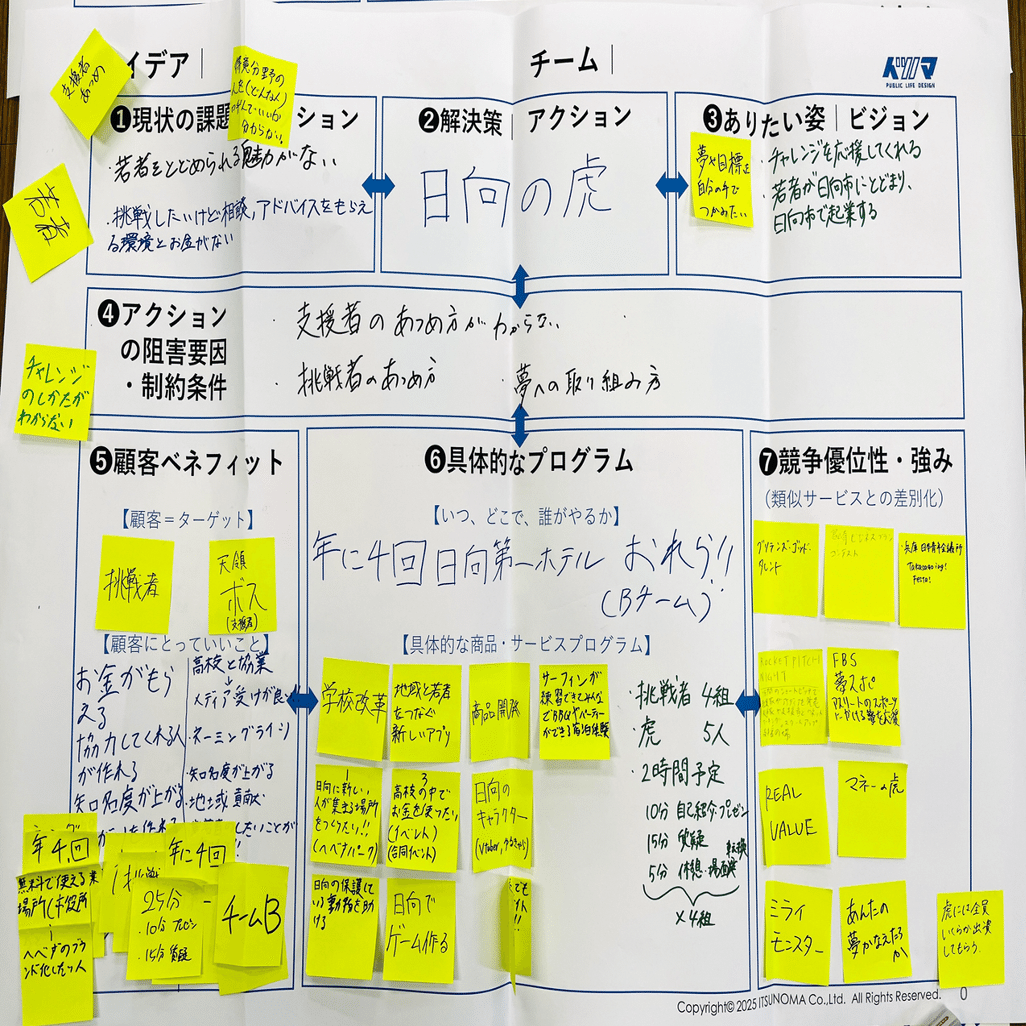 支援者
あつめ
イデア｜
得意分野の
人を(どんな人)
呼んでいいか
分からない。
チーム｜
PUBLIC LIFE DESIGN
❶現状の課題
ション
・若者をとどめられる魅力がない
・挑戦したいけど相談,アドバイスをもらえ
る環境とお金がない
❷解決策｜アクション
日向の虎
❸ありたい姿｜ビジョン
夢や目標を
自分の手で
つかみたい
・チャレンジを応援してくれる
・若者が日向市にとどまり、
日向市で起業する
若者
❹アクション
の阻害要因
・制約条件
・支援者のあつめ方がわからない
・挑戦者のあつめ方
・夢への取り組み方
チャレンジ
のしかたが
わからない
❺顧客ベネフィット
【顧客＝ターゲット】
挑戦者
天領
ボス
(支援者)
【顧客にとっていいこと】
お金がもら
える
協力してくれる人
が作れる
知名度が上がる
高校と協業
↓
メディア受けが良い
・ネーミングライツ
・知名度が上がる
・地域貢献
年4回
無料で使える
場所
市役所
年に4回
25分
・10分
・15分 質疑
チームB
❻具体的なプログラム
【いつ、どこで、誰がやるか】
年に4回 日向第一ホテル おれら!!
(Bチーム)
【具体的な商品・サービスプログラム】
学校改革
地域と若者
をつなぐ
新しいアプリ
商品開発
サーフィンが
練習できてみんな
でBBQやパーティー
ができる宿泊体験
1
日向に新しい
人が集える場所
をつくりたい!!
(ヘベナパーク)
3
高校の中で
お金を使ったい
(イベント)
(合同イベント)
日向の
キャラクター
(Vtuber,ゆるきゃら)
日向の保護して
いる動物を助
ける
日向で
ゲーム作る
・挑戦者 4組
・虎 5人
・2時間予定
10分 自己紹介・プレゼン
15分 質疑
5分 休憩・場面転換
×4組
❼競争優位性・強み
(類似サービスとの差別化)
ブリテンズ・ゴッド・
タレント
コンテスト
・兵庫 日本青年会議所
Takasago ing!
Festa!
ROCKET PITCH
NIGHT
FBS
夢スポ
アスリートのスポーツ
にかける夢を応援
REAL
VALUE
マネーの虎
ミライ
モンスター
あんたの
夢かなえたろ
か
虎には全員
いくらか出資
してもらう。
Copyright© 2025 ITSUNOMA Co.,Ltd. All Rights Reserved.
0